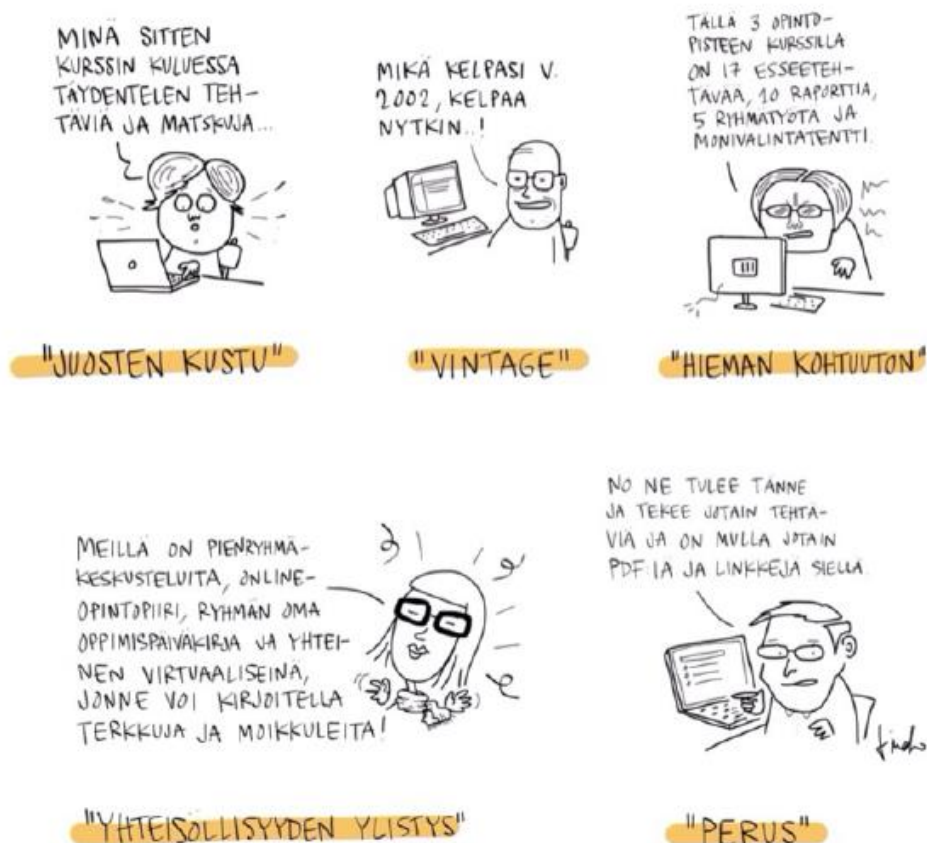 MINÄ SITTEN
KURSSIN KULUESSA
TÄYDENTELEN TEH-
TÄVIÄ JA MATSKUJA...
"JUOSTEN KUSTU"
MIKÄ KELPASI V.
2002, KELPAA
NYTKIN..!
"VINTAGE"
TÄLLÄ 3 OPINTO-
PISTEEN KURSSILLA
ON 17 ESSEETEH-
TÄVÄÄ, 10 RAPORTTIA,
5 RYHMÄTYÖTÄ JA
MONIVALINTATENTTI.
"HIEMAN KOHTUUTON"
MEILLÄ ON PIENRYHMÄ-
KESKUSTELUITA, ONLINE-
OPINTOPIIRI, RYHMÄN OMA
OPPIMISPÄIVÄKIRJA JA YHTEI-
NEN VIRTUAALISEINÄ,
JONNE VOI KIRJOITELLA
TERKKUJA JA MOIKKULEITA!
"YHTEISÖLLISYYDEN YLISTYS"
NO NE TULEE TÄNNE
JA TEKEE JOTAIN TEHTÄ-
VIÄ JA ON MULLA JOTAIN
PDF:IÄ JA LINKKEJÄ SIELLÄ
"PERUS"